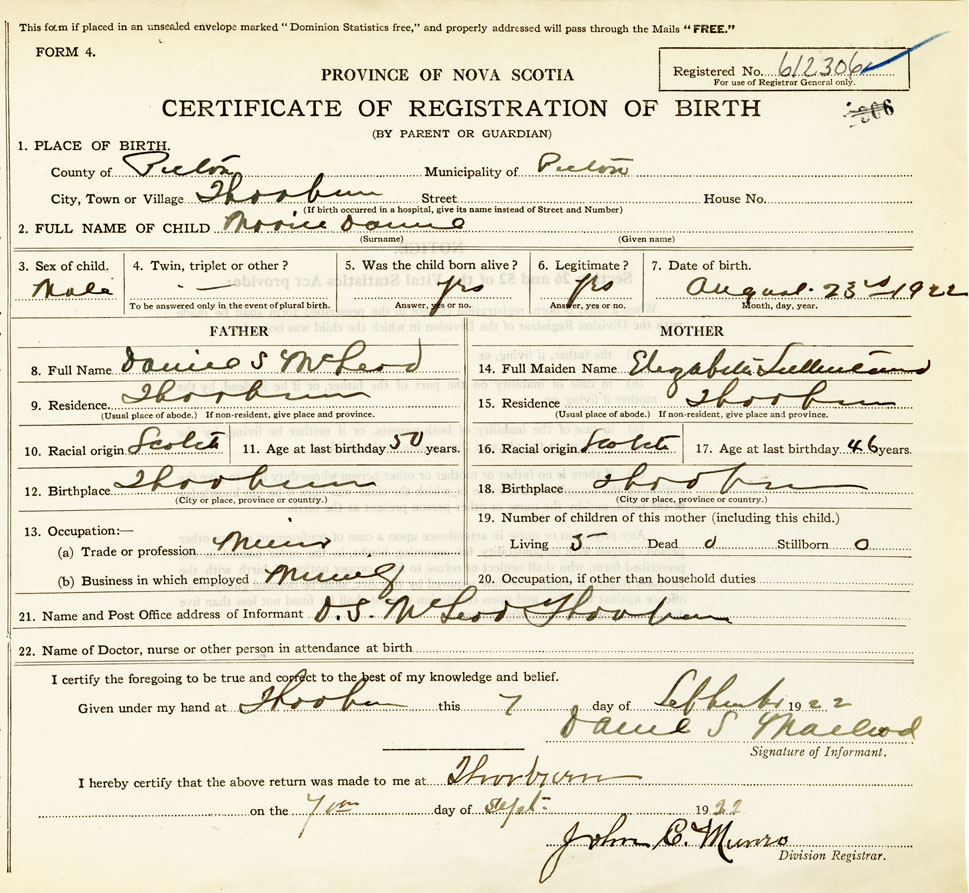 This form if placed in an unsealed envelope marked "Dominion Statistics free," and properly addressed will pass through the Mails "FREE."
FORM 4.
Registered No. 612306
For use of Registrar General only.
PROVINCE OF NOVA SCOTIA
CERTIFICATE OF REGISTRATION OF BIRTH
(BY PARENT OR GUARDIAN)
1. PLACE OF BIRTH.
County of Pictou Municipality of Pictou
City, Town or Village Thorburn Street House No.
(If birth occurred in a hospital, give its name instead of Street and Number)
2. FULL NAME OF CHILD
(Surname) (Given name)
3. Sex of child. 4. Twin, triplet or other? 5. Was the child born alive? 6. Legitimate? 7. Date of birth.
Male — yes yes August 23rd 1922
To be answered only in the event of plural birth. Answer, yes or no. Answer, yes or no. Month, day, year.
FATHER MOTHER
8. Full Name Daniel S McLeod 14. Full Maiden Name Elizabeth
9. Residence Thorburn 15. Residence Thorburn
(Usual place of abode.) If non-resident, give place and province. (Usual place of abode.) If non-resident, give place and province.
10. Racial origin Scotch 11. Age at last birthday 50 years. 16. Racial origin Scotch 17. Age at last birthday 46 years.
12. Birthplace Thorburn 18. Birthplace Thorburn
(City or place, province or country.) (City or place, province or country.)
13. Occupation:— 19. Number of children of this mother (including this child.)
(a) Trade or profession Miner Living 5 Dead 0 Stillborn 0
(b) Business in which employed Mining 20. Occupation, if other than household duties
21. Name and Post Office address of Informant D. S. McLeod Thorburn
22. Name of Doctor, nurse or other person in attendance at birth
I certify the foregoing to be true and correct to the best of my knowledge and belief.
Given under my hand at Thorburn this 7 day of September 1922
Daniel S Macleod
Signature of Informant.
I hereby certify that the above return was made to me at Thorburn
on the 7 day of Sept. 1922
John C. Munro
Division Registrar.